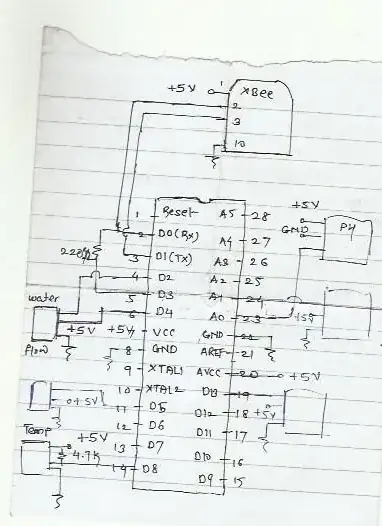 +5V 1 XBee
2
3
10
1 Reset A5 28
2 D0(Rx) A4 27
3 D1(TX) A3 26
4 D2 A2 25
5 D3 A1 24
6 D4 A0 23
+5V 7 VCC GND 22
8 GND AREF 21
9 XTAL1 AVCC 20 +5V
10 XTAL2 D13 19
11 D5 D12 18
12 D6 D11 17
13 D7 D10 16
14 D8 D9 15
+5V
GND PH
+5V
+5V
water
+5V
flow
+5V
Temp
+5V
4.7K